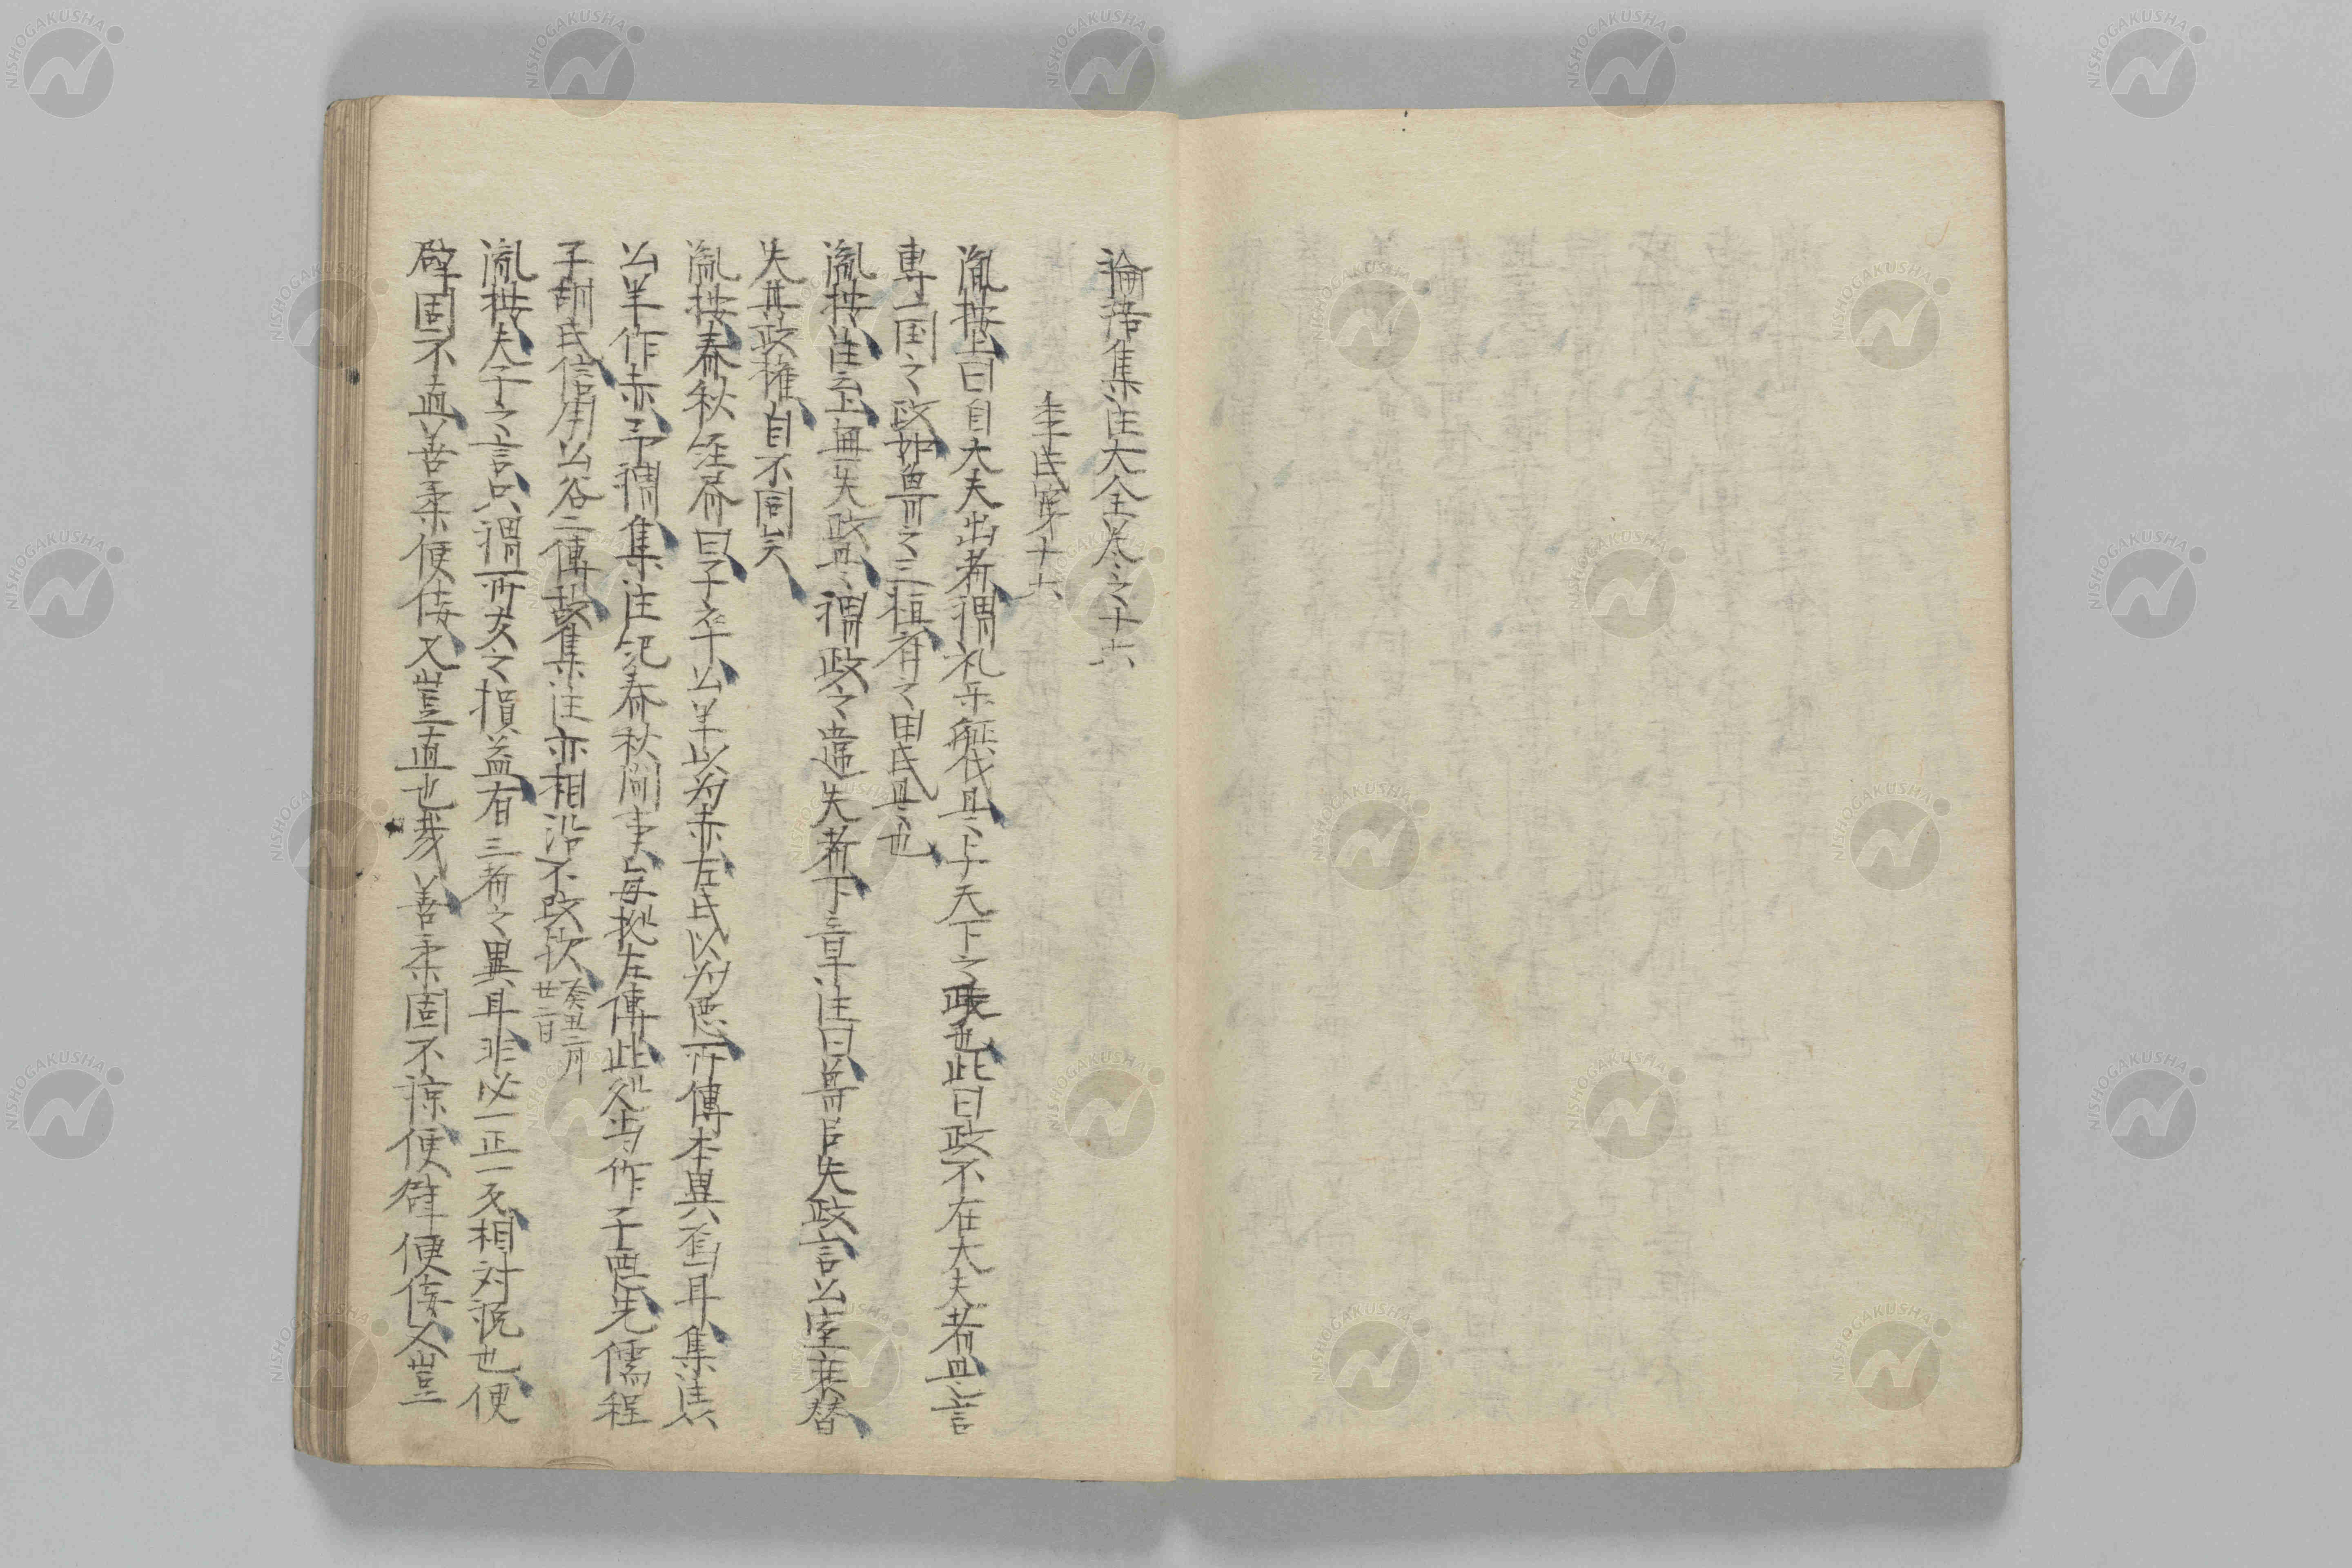 論語集注大全卷之十六
季氏第十六
胤按上曰自大夫出者謂礼樂征伐且上于天下之政也此曰政不在大夫者且言
專一国之政如魯之三桓齊之田氏是也
胤按注云上無失政是謂政之違失者下章注曰魯君失政言公室衰替
失其政權自不同矣
胤按春秋経奔曰子卒公羊以为赤左氏以为惡所傳本異不同耳集注从
公羊作赤予謂集注記春秋間事每拠左傳此処当作子惡先儒程
子胡氏信用公谷二傳故集注亦相沿不改欤 癸丑二月
廿二日
胤按夫子之言只謂所友之損益有三者之異耳非必一正一反相對説也便
辟固不直善柔便佞又豈直也哉善柔固不諒便辟便佞又豈
NISHOGAKUSHA